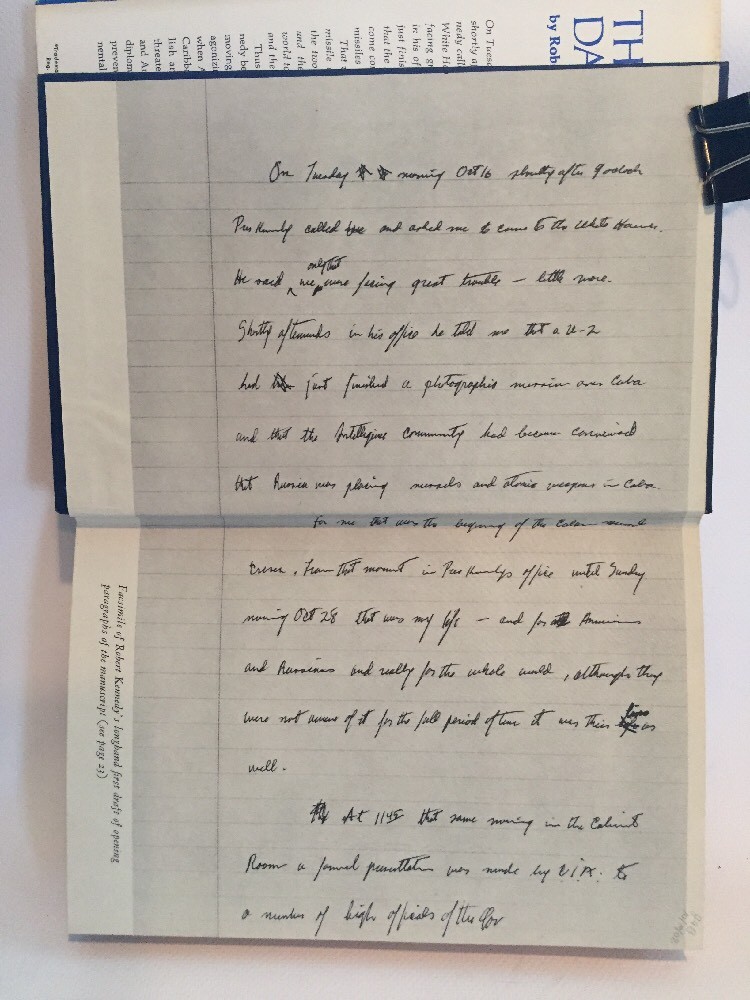 TH
DA
by Rob
On Tuesd
shortly a
nedy call
White H
facing gr
in his of
just finis
that the
come co
missiles
That
missile
the two
and the
world to
and the
Thus
nedy be
moving
agonizi
when A
Caribb
lish ar
threate
and A
diplom
preven
nental
On Tuesday morning Oct 16 shortly after 9 oclock
Pres Kennedy called and asked me to come to the White House.
He said only that we were facing great trouble — little more.
Shortly afterwards in his office he told me that a U-2
had just finished a photographic mission over Cuba
and that the Intelligence community had become convinced
that Russia was placing missiles and atomic weapons in Cuba.
For me that was the beginning of the Cuban missile
crises. From that moment in Pres Kennedys office until Sunday
morning Oct 28 that was my life — and for all Americans
and Russians and really for the whole world, although they
were not aware of it for the full period of time it was their lives as
well.
At 1145 that same morning in the Cabinet
Room a formal presentation was made by C.I.A. to
a number of high officials of the Gov
Facsimile of Robert Kennedy's longhand first draft of opening
paragraphs of the manuscript (see page 23)